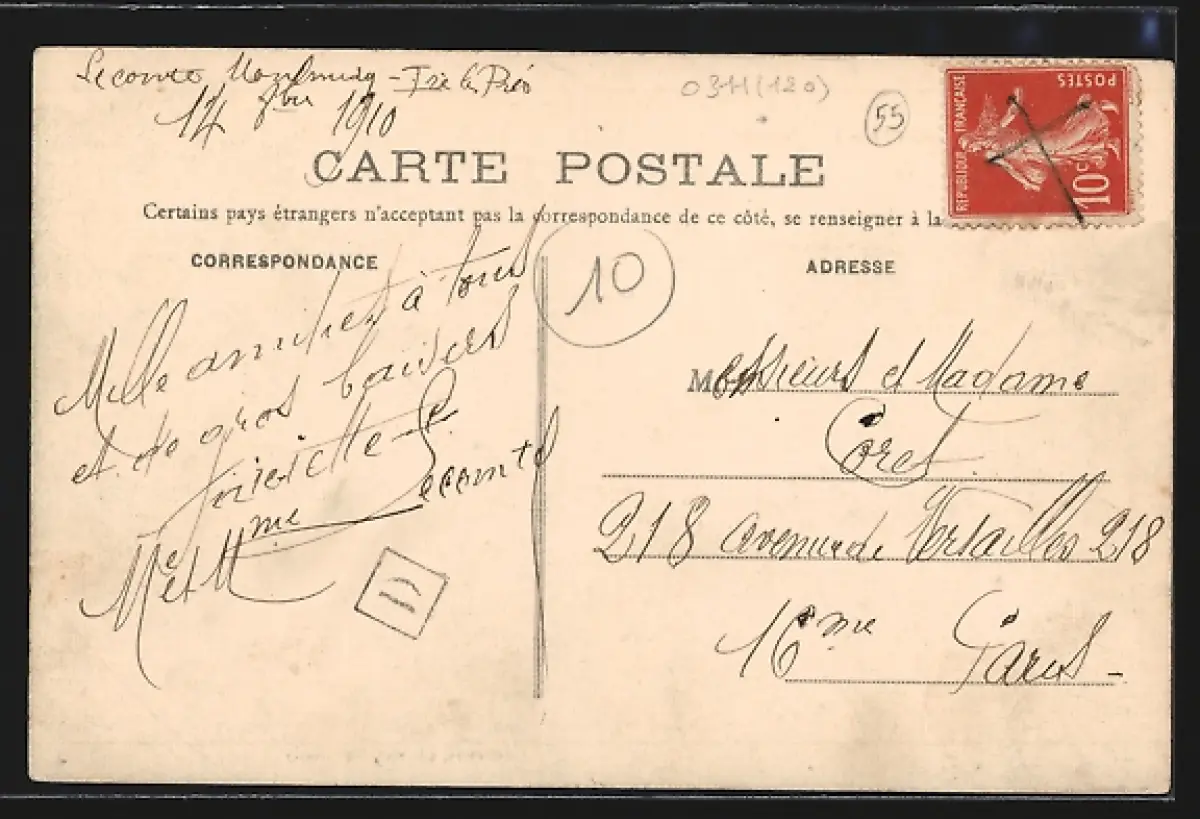 Lecomte
14 9bre 1910
0311(120)
55
RÉPUBLIQUE FRANÇAISE
POSTES
10c
CARTE POSTALE
Certains pays étrangers n'acceptant pas la correspondance de ce côté, se renseigner à la
CORRESPONDANCE
10
ADRESSE
Mille amitiés à tous
et de gros baisers
Henriette
Mr et Mme Lecomte
Messieurs et Madame
Coret
218 avenue de Versailles 218
16eme Paris -